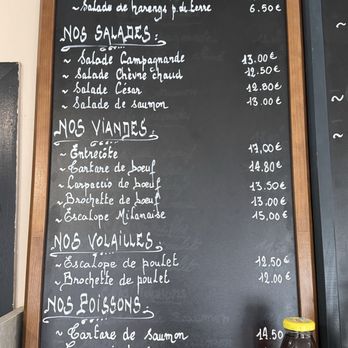 ~ Salade de harengs p. de terre 6.50€
NOS SALADES :
~ Salade Campagnarde 13.00€
~ Salade Chèvre chaud 12.50€
~ Salade César 12.80€
~ Salade de saumon 13.00€
NOS VIANDES :
~ Entrecôte 17,00€
~ Tartare de bœuf 14.80€
~ Carpaccio de bœuf 13.50€
~ Brochette de bœuf 13.00€
~ Escalope Milanaise 15,00€
NOS VOLAILLES :
~ Escalope de poulet 12.50€
~ Brochette de poulet 12.00€
NOS POISSONS :
~ Tartare de saumon 14.50